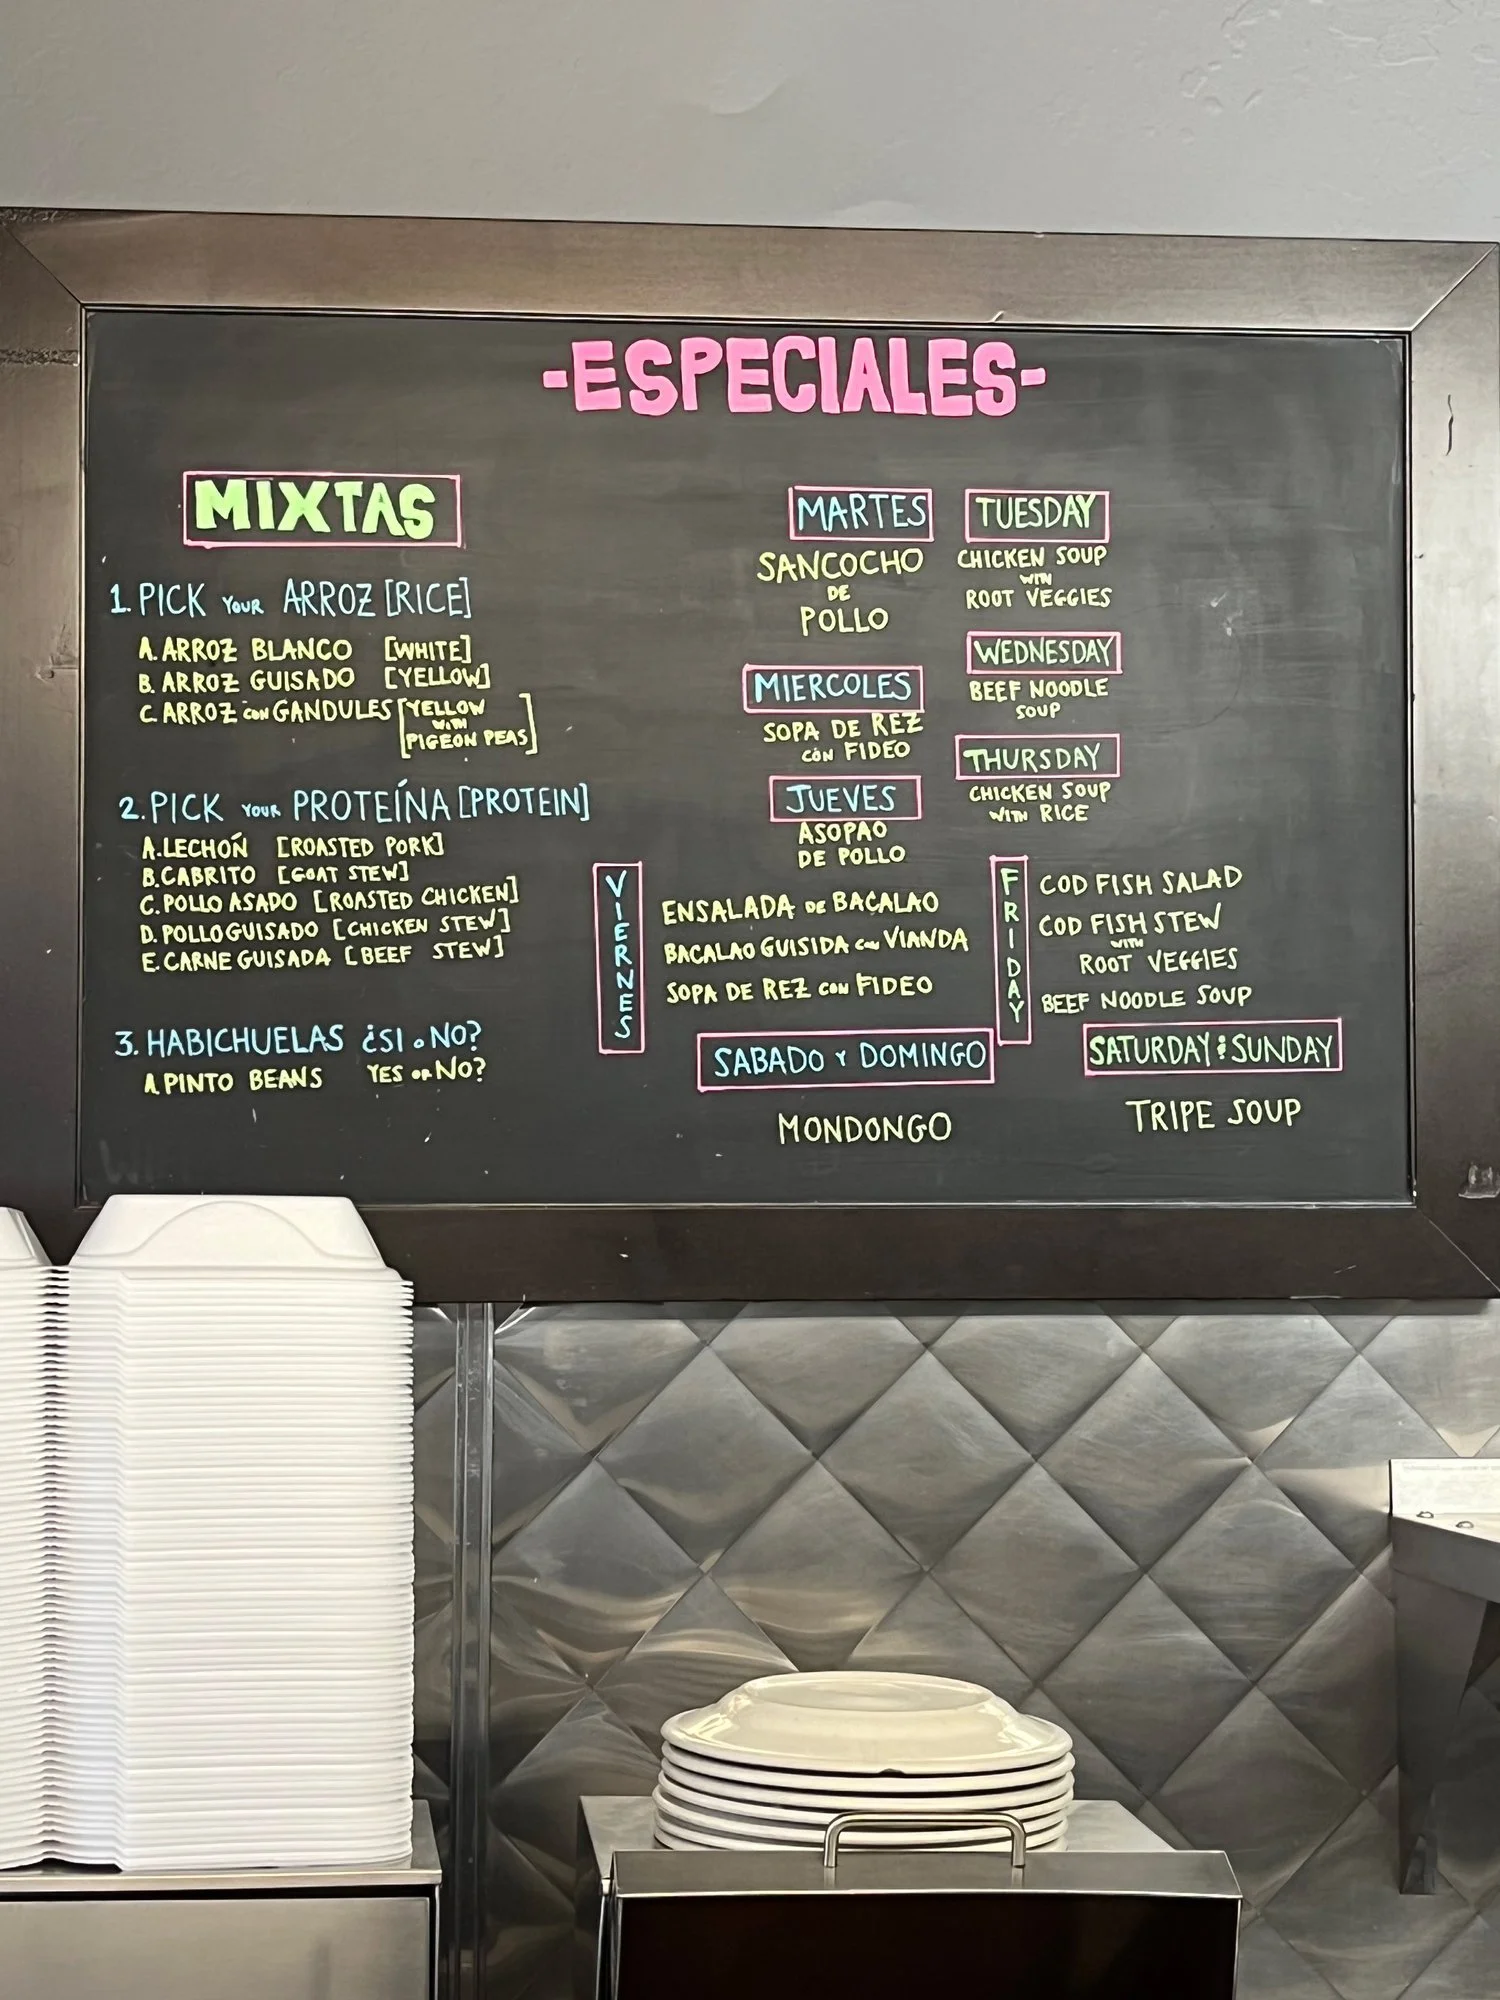 -ESPECIALES-
MIXTAS
1. PICK YOUR ARROZ [RICE]
A. ARROZ BLANCO [WHITE]
B. ARROZ GUISADO [YELLOW]
C. ARROZ CON GANDULES [YELLOW
WITH
PIGEON PEAS]
2. PICK YOUR PROTEÍNA [PROTEIN]
A. LECHOŃ [ROASTED PORK]
B. CABRITO [GOAT STEW]
C. POLLO ASADO [ROASTED CHICKEN]
D. POLLO GUISADO [CHICKEN STEW]
E. CARNE GUISADA [BEEF STEW]
3. HABICHUELAS ¿SI o NO?
A. PINTO BEANS YES OR NO?
MARTES
SANCOCHO
DE
POLLO
MIERCOLES
SOPA DE REZ
CON FIDEO
JUEVES
ASOPAO
DE POLLO
VIERNES
ENSALADA DE BACALAO
BACALAO GUISIDA CON VIANDA
SOPA DE REZ CON FIDEO
SABADO Y DOMINGO
MONDONGO
TUESDAY
CHICKEN SOUP
WITH
ROOT VEGGIES
WEDNESDAY
BEEF NOODLE
SOUP
THURSDAY
CHICKEN SOUP
WITH RICE
FRIDAY
COD FISH SALAD
COD FISH STEW
WITH
ROOT VEGGIES
BEEF NOODLE SOUP
SATURDAY & SUNDAY
TRIPE SOUP